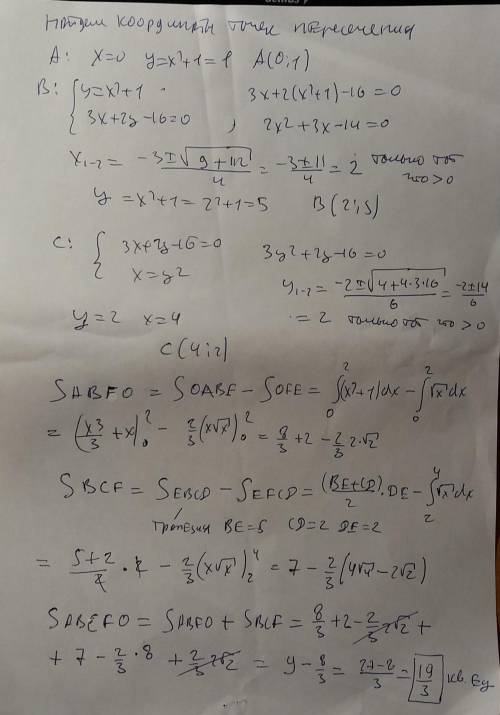 Найдем координаты точек пересечения
A: x=0 y=x²+1=1 A(0;1)
B: { y=x²+1 3x+2(x²+1)-16=0
3x+2y-16=0 , 2x²+3x-14=0
x₁₋₂ = (-3±√(9+112))/4 = (-3±11)/4 = 2 только тот что >0
y = x²+1 = 2²+1 = 5 B(2;5)
C: { 3x+2y-16=0 3y²+2y-16=0
x=y² y₁₋₂ = (-2±√(4+4·3·16))/6 = (-2±14)/6
y=2 x=4 = 2 только тот что >0
C(4;2)
SABFO = SOABE - SOFE = ∫₀²(x²+1)dx - ∫₀²√x dx
= (x³/3 + x)₀² - 2/3(x√x)₀² = 8/3 + 2 - 2/3 2·√2
SBCF = SEBCD - SEFCD = (BE+CD)/2 · DE - ∫₂⁴√x dx
трапеция BE=5 CD=2 DE=2
= (5+2)/2 · 2 - 2/3(x√x)₂⁴ = 7 - 2/3(4√4 - 2√2)
SABEFO = SABFO + SBCF = 8/3 + 2 - 2/3 2√2 +
+ 7 - 2/3·8 + 2/3 2√2 = 9 - 8/3 = (27-8)/3 = 19/3 кв. ед